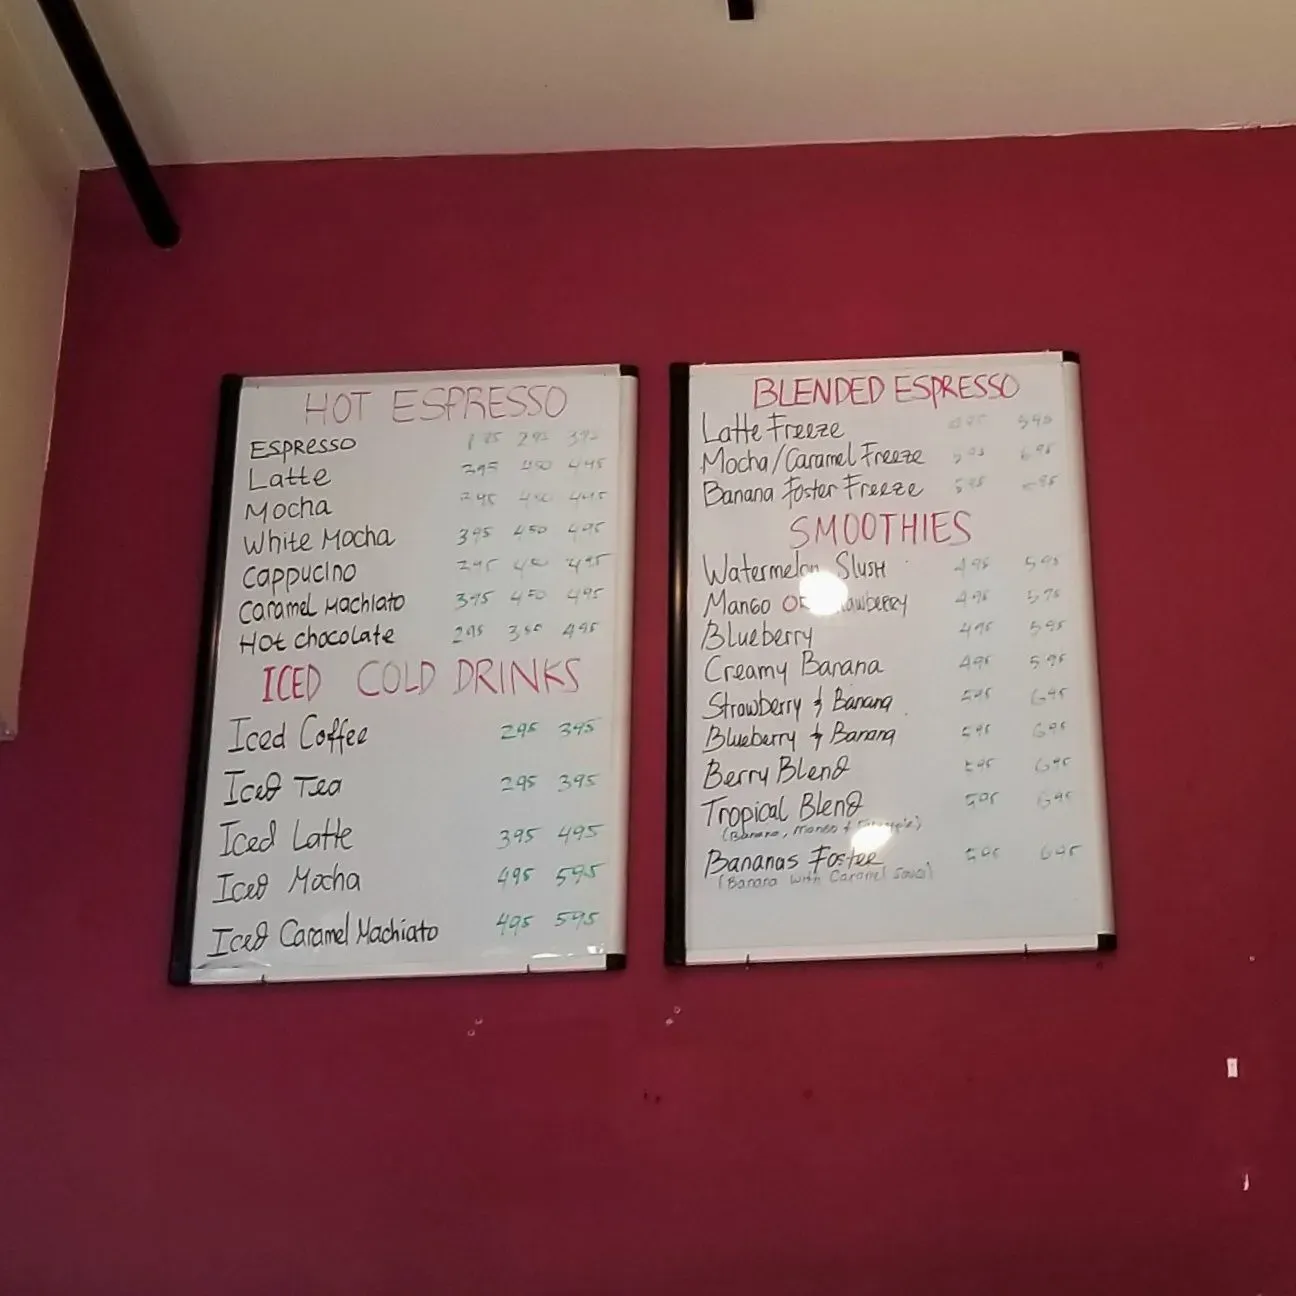 HOT ESPRESSO
ESPRESSO 295
Latte 295 450 495
Mocha
White Mocha 395 450 495
Cappucino 495
Caramel Machiato 395 450 495
Hot chocolate 295 350 495
ICED COLD DRINKS
Iced Coffee 295 395
Iced Tea 295 395
Iced Latte 395 495
Iced Mocha 495 595
Iced Caramel Machiato 495 595
BLENDED ESPRESSO
Latte Freeze 595
Mocha/Caramel Freeze 695
Banana Foster Freeze 595
SMOOTHIES
Watermelon Slush 495 595
Mango OR 495 595
Blueberry 495 595
Creamy Banana 495 595
Strawberry & Banana 595 695
Blueberry & Banana 595 695
Berry Blend 595 695
Tropical Blend 595 695
(Banana, Mango &
Bananas Foster 595 695
(Banana with Caramel Sauce)